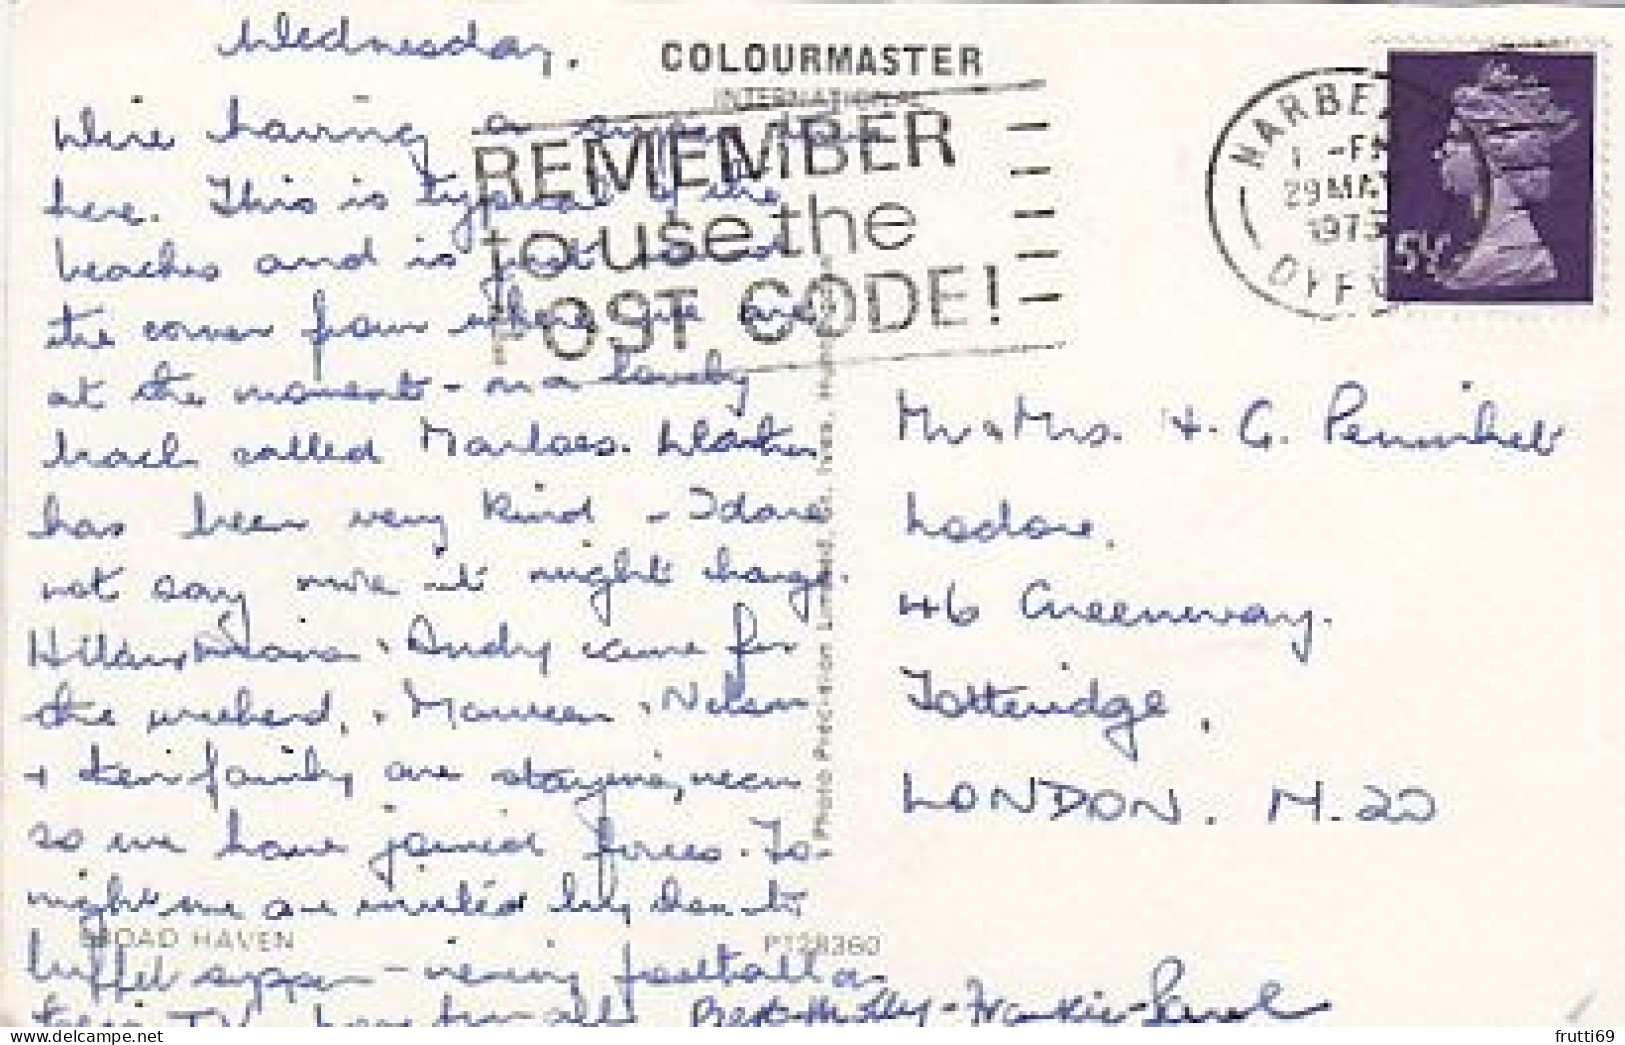 Wednesday.
COLOURMASTER
INTERNATIONAL
We're having a super time
here. This is typical of the
beaches and is just round
the corner from where we are
at the moment - in a lovely
beach called Marloes. Weather
has been very kind - I dare
not say more it might change.
Hilary, & Andy came for
the weekend, & Maureen, Nelson
& their family are staying near
so we have joined forces. To-
night we are invited by them to
buffet supper - viewing football on
TV. love from all
REMEMBER
to use the
POST CODE!
NARBE
1 -PM
29 MAY
1975
DYFE
5½
Mr & Mrs. H. G.
Lodore.
46 Greenway.
Totteridge.
LONDON. N.20
Molly - Frankie -
Photo Precision Limited, St. Ives, Hunt
BROAD HAVEN
PT28360
frutti69